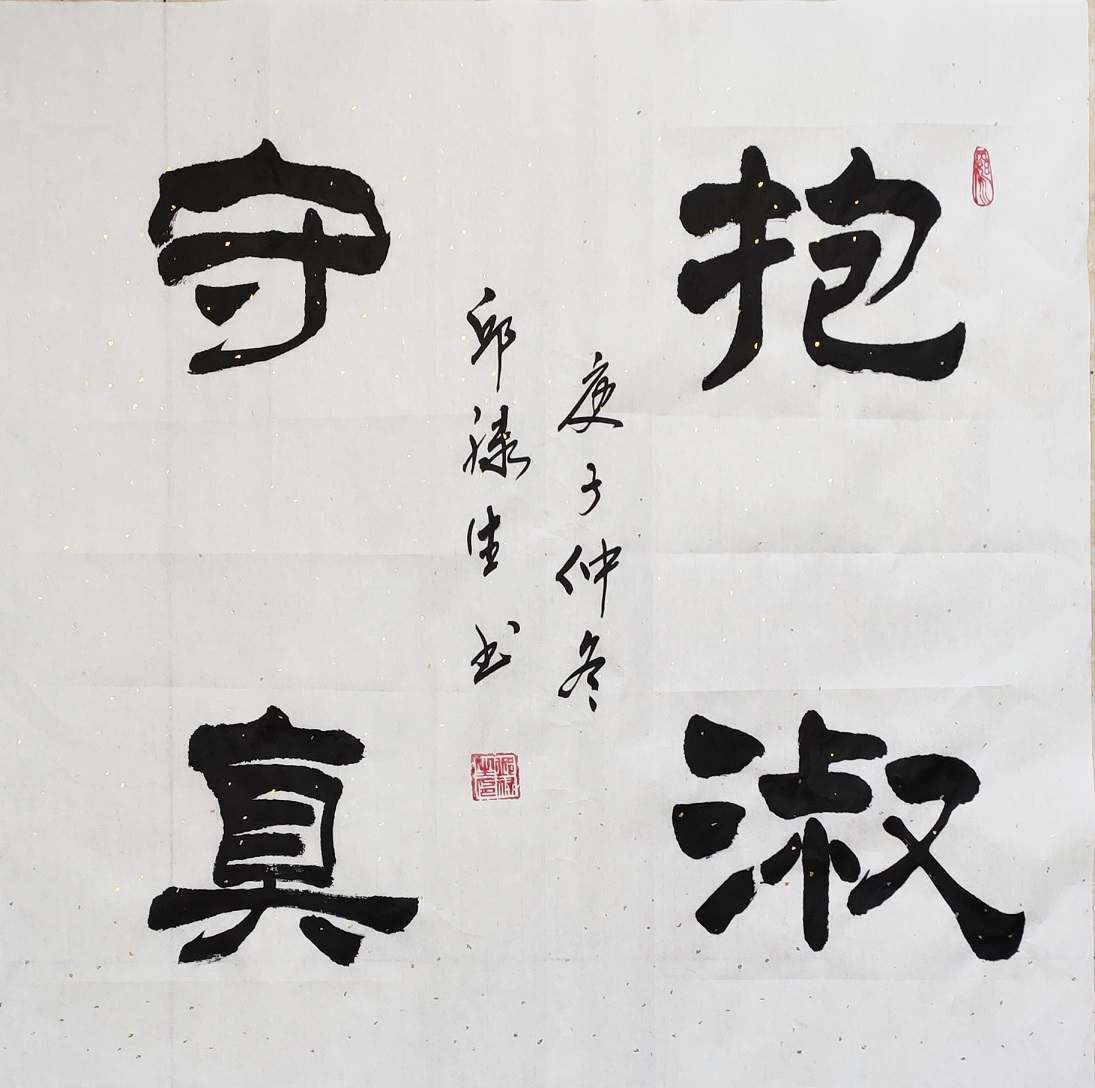 抱淑
守真
庚子仲冬
邱禄生书